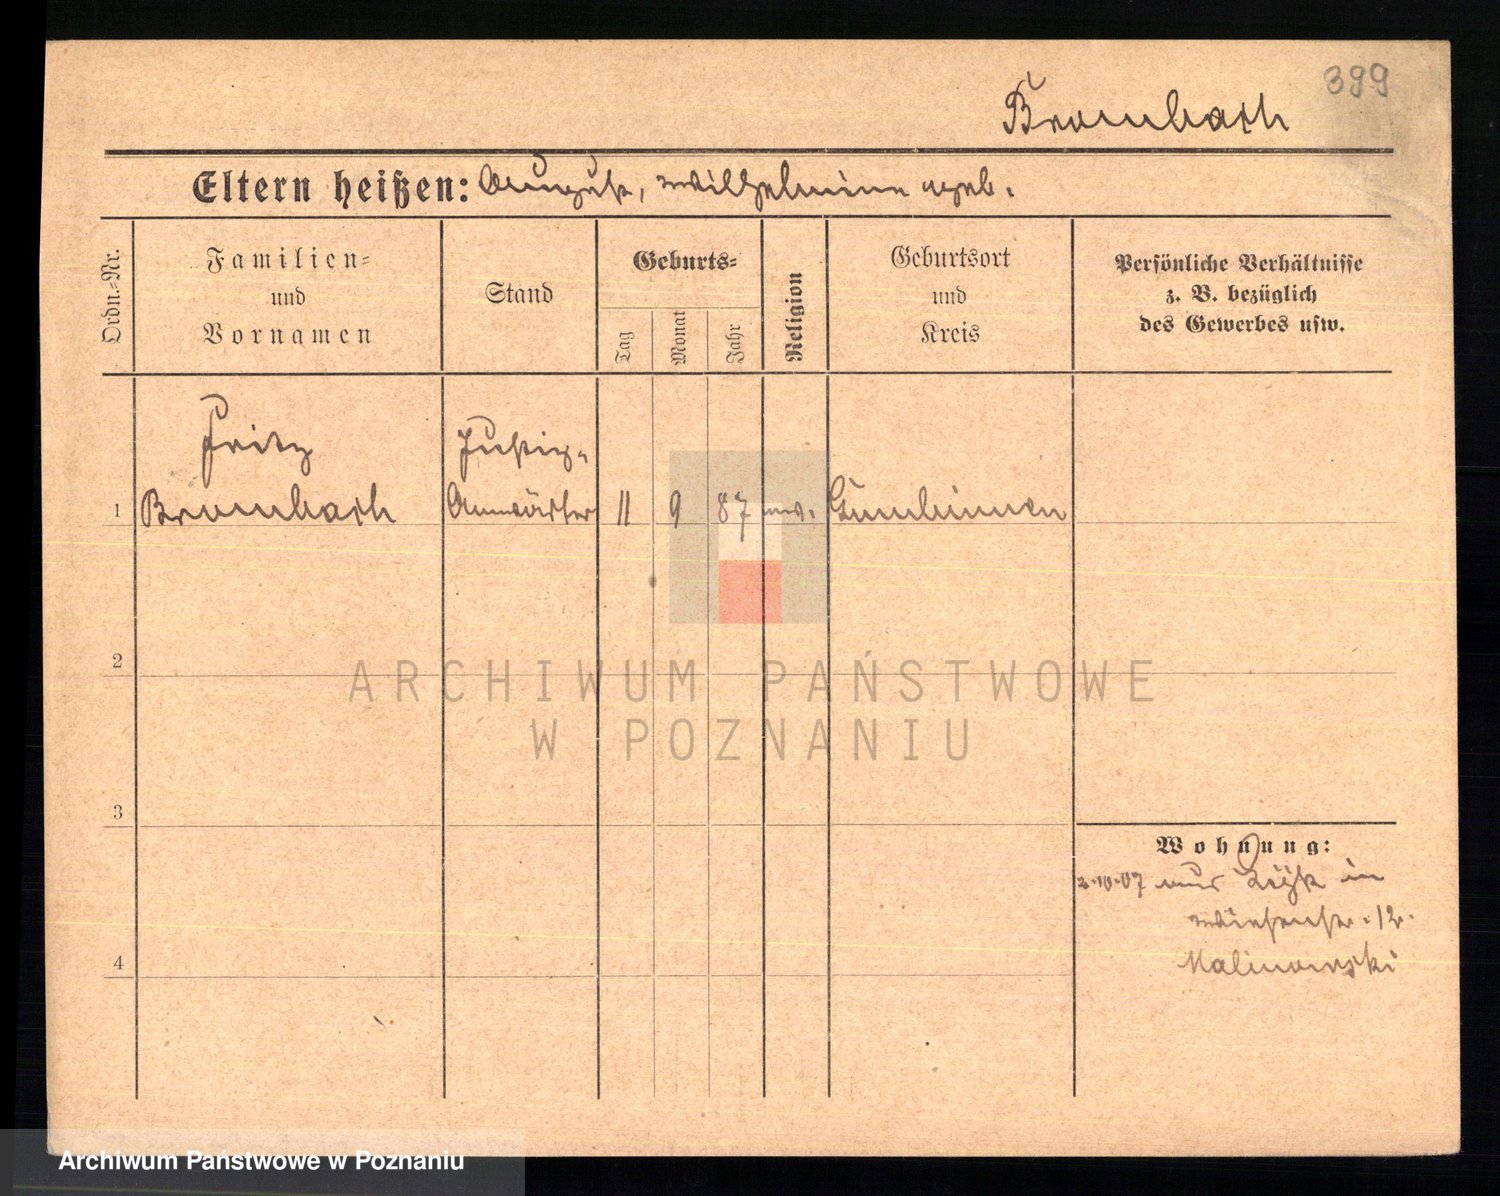 399
Brombach
Eltern heißen: August, Wilhelmine geb.
Ordn.-Nr.
Familien-
und
Vornamen
Stand
Geburts-
Tag
Monat
Jahr
Religion
Geburtsort
und
Kreis
Persönliche Verhältnisse
z. B. bezüglich
des Gewerbes usw.
Fritz
Justiz-
1 Brombach Anwärter 11 9 87 ev. Gumbinnen
2
3
4
Wohnung:
2.10.07 aus Lyck in
12.
Malinowski
ARCHIWUM PAŃSTWOWE
W POZNANIU
Archiwum Państwowe w Poznaniu